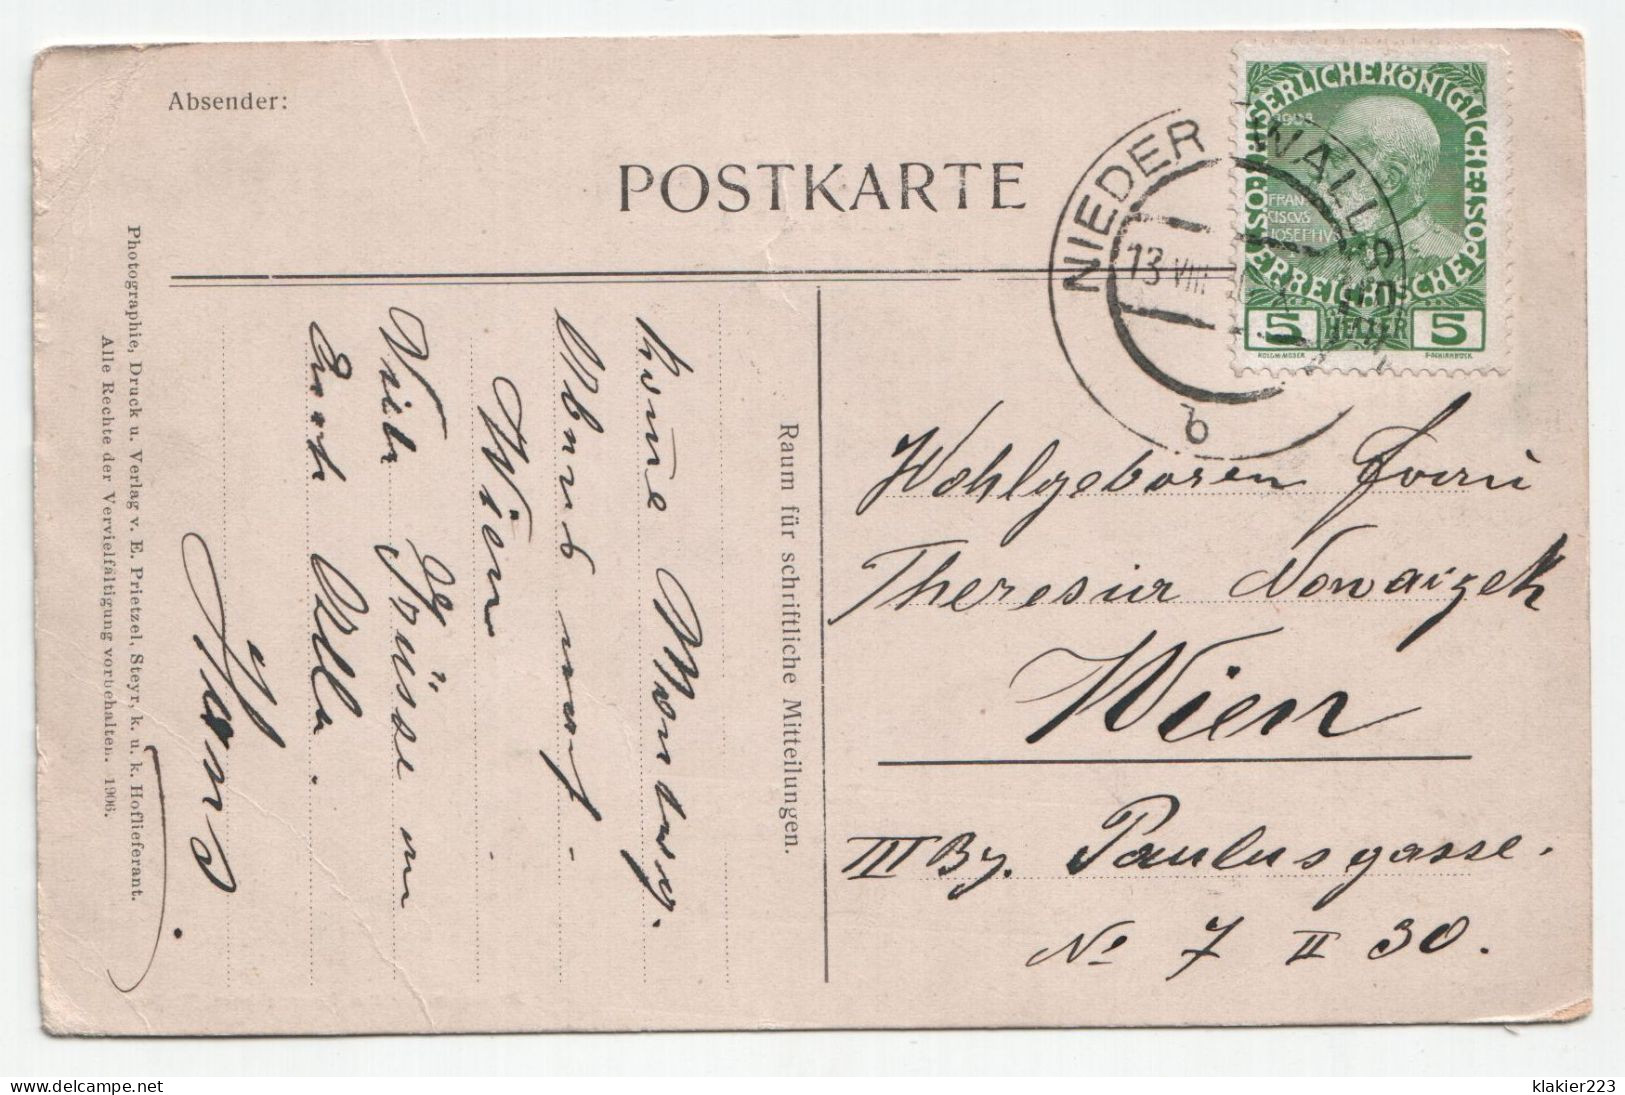 Absender:
POSTKARTE
NIEDER WALLSEE
13 VIII
b
KAISERLICHE KÖNIGLICHE ÖSTERREICHISCHE POST
1908
FRAN
CISCVS
JOSEPHVS
5 HELLER 5
KOLOM·MOSER
F·SCHIRNBÖCK
Raum für schriftliche Mitteilungen.
Montag
Abend
Wien
Viele Grüsse an
Euch Alle.
Hans.
Photographie, Druck u. Verlag v. E. Prietzel, Steyr, k. u. k. Hoflieferant.
Alle Rechte der Vervielfältigung vorbehalten. 1906.
Wohlgeboren Frau
Theresia Nowaczek
Wien
III Bz. Paulusgasse.
No 7 II 30.
klakier223